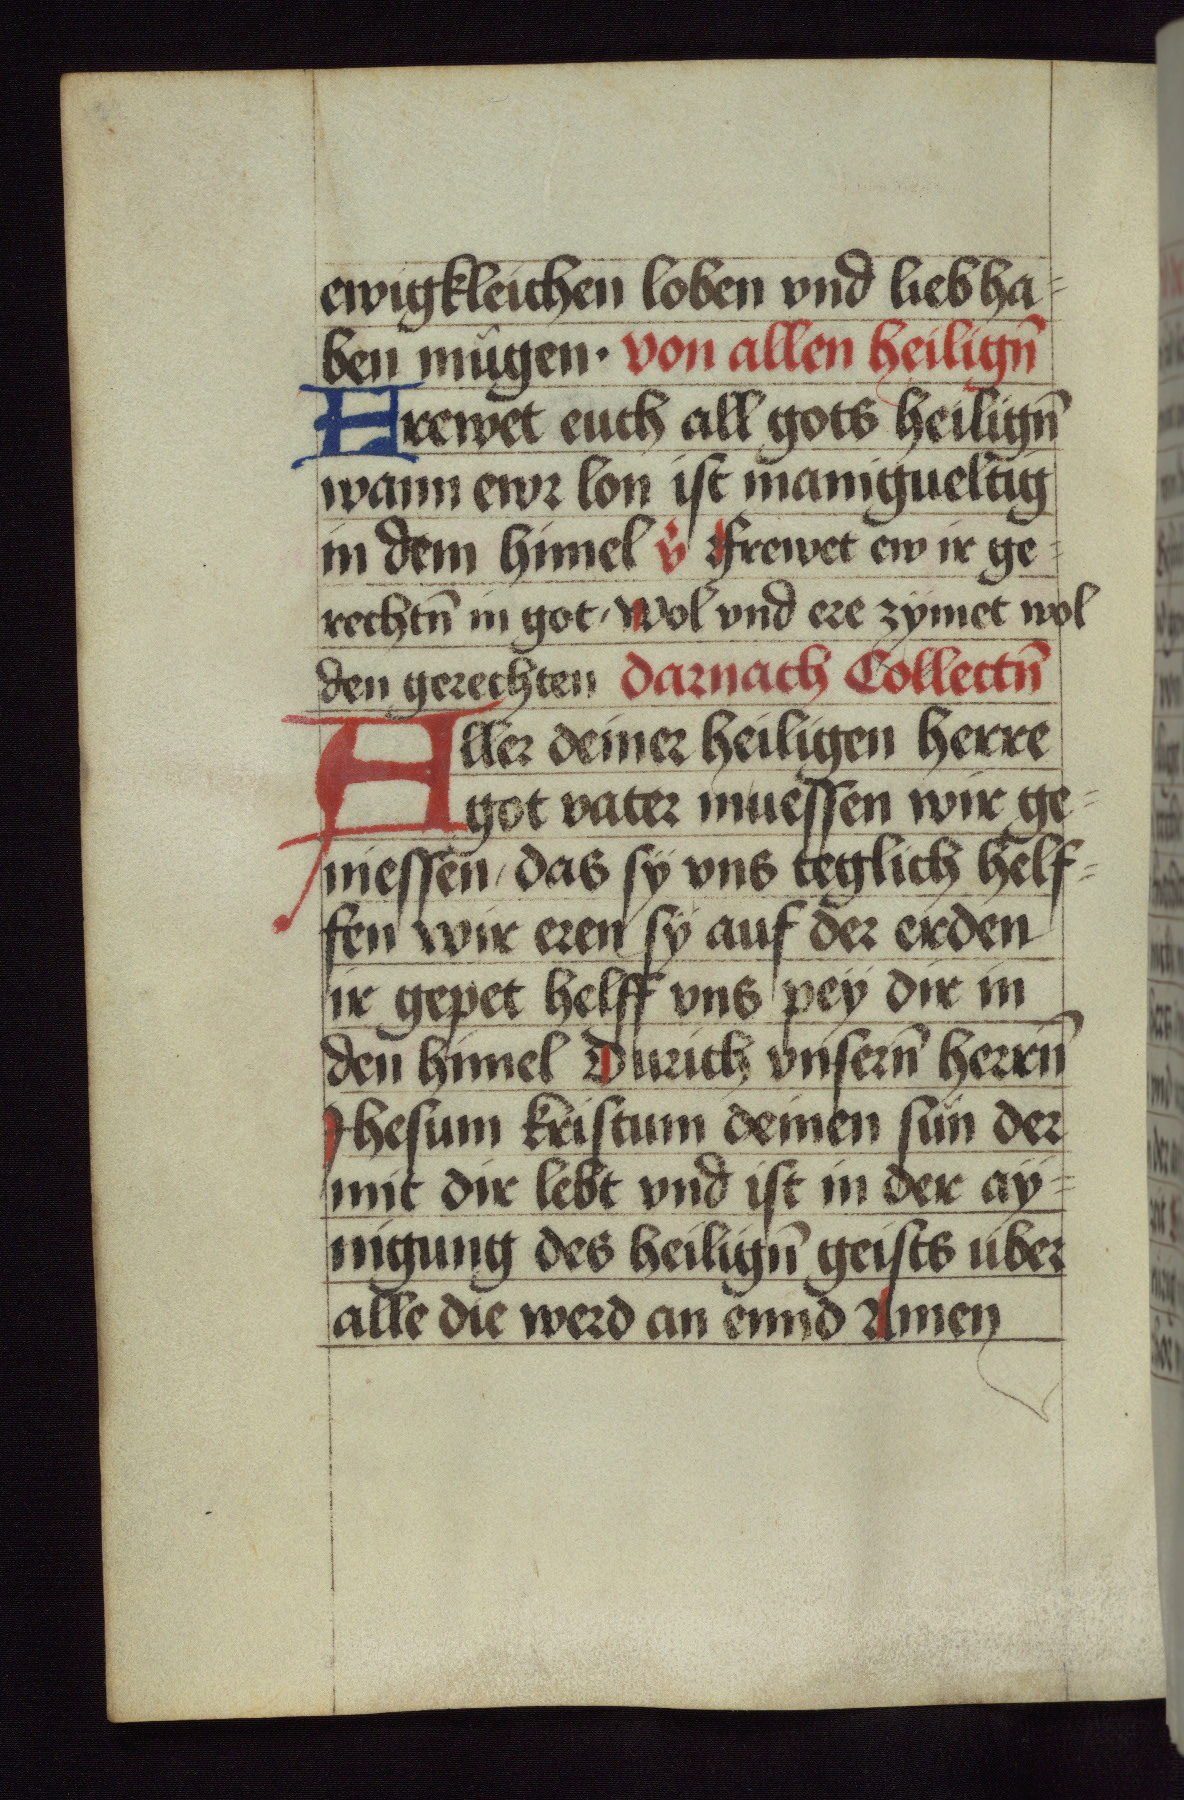 ewigkleichen loben vnd lieb ha=
ben mügen · von allen heilign̄
Frewet euch all gots heilign̄
wann ewr lon ist manigueltig
in dem himel v̊ Frewet ew ir ge=
rechtn̄ in got / Wol vnd ere zÿmet wol
den gerechten darnach Collectn̄
Aller deiner heiligen herre
got vater muessen wir ge=
niessen / das sÿ vns teglich helf=
fen wir eren sÿ auf der erden
ir gepet helff vns pey dir in
den himel Durich vnsern̄ herrn̄
Jhesum kristum deinen sün der
mit dir lebt vnd ist in der aÿ=
nigung des heilign̄ geists über
alle die werd an ennd Amen